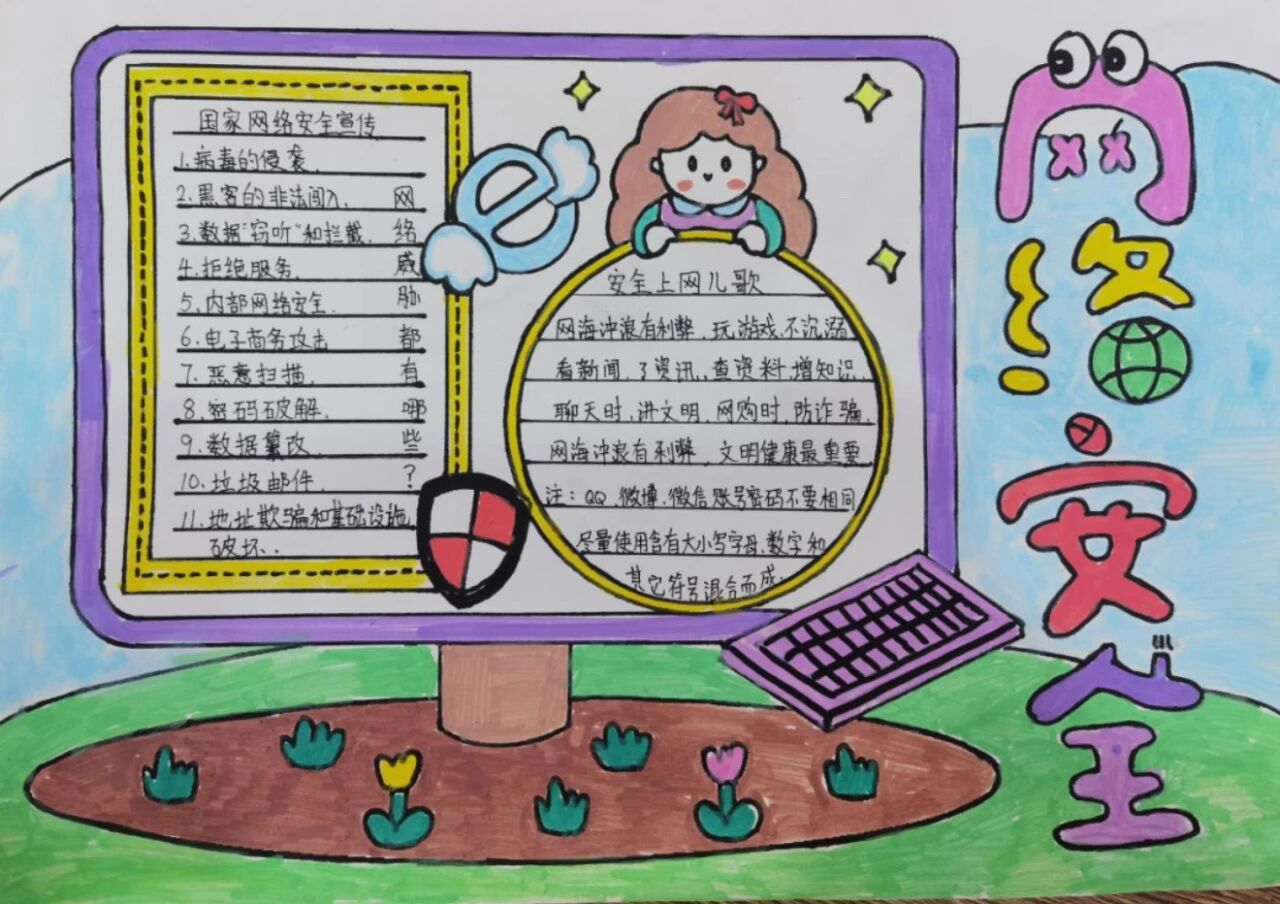 国家网络安全宣传
1.病毒的侵袭.
2.黑客的非法闯入.
3.数据"窃听"和拦截.
4.拒绝服务.
5.内部网络安全.
6.电子商务攻击
7.恶意扫描.
8.密码破解.
9.数据篡改.
10.垃圾邮件.
11.地址欺骗和基础设施
破坏..
网络威胁都有哪些?
安全上网儿歌
网海冲浪有利弊.玩游戏.不沉溺
看新闻.了资讯.查资料.增知识.
聊天时.讲文明.网购时.防诈骗.
网海冲浪有利弊.文明健康最重要
注:QQ.微博.微信.账号密码不要相同
尽量使用含有大小写字母.数字和
其它符号混合而成.
网络安全